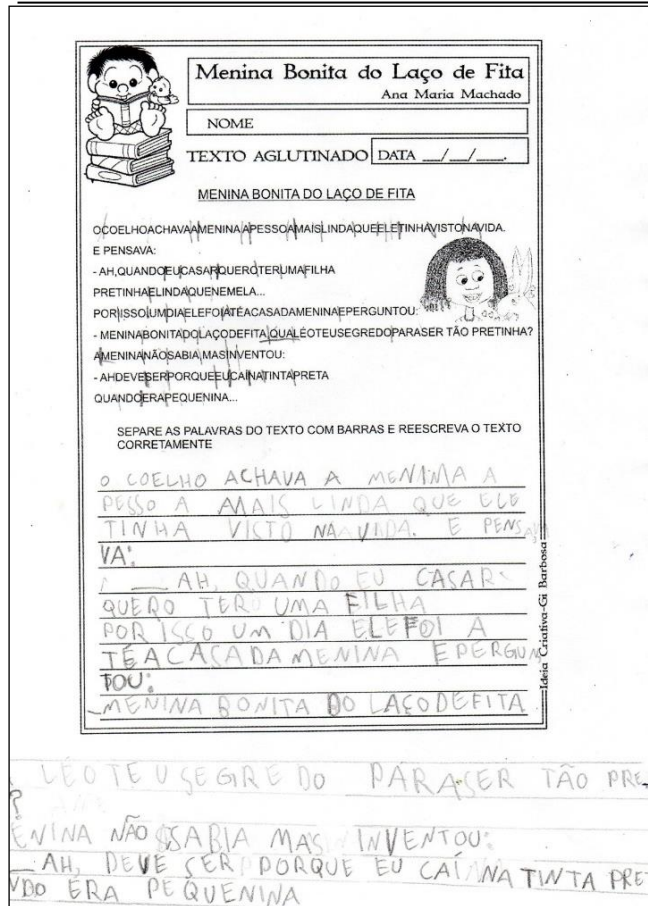 Menina Bonita do Laço de Fita
Ana Maria Machado
NOME
TEXTO AGLUTINADO DATA __/__/___.
MENINA BONITA DO LAÇO DE FITA
OCOELHOACHAVAAMENINAAPESSOAMAISLINDAQUEELETINHAVISTONAVIDA.
E PENSAVA:
- AH,QUANDOEUCASARQUEROTERUMAFILHA
PRETINHAELINDAQUENEMELA...
PORISSO,UMDIAELEFOIATÉACASADAMENINAEPERGUNTOU:
- MENINABONITADOLAÇODEFITA,QUALÉOTEUSEGREDOPARASER TÃO PRETINHA?
AMENINANÃOSABIA,MASINVENTOU:
- AHDEVESERPORQUEEUCAÍNATINTAPRETA
QUANDOERAPEQUENINA...
SEPARE AS PALAVRAS DO TEXTO COM BARRAS E REESCREVA O TEXTO
CORRETAMENTE
O COELHO ACHAVA A MENINA A
PESSO A MAIS LINDA QUE ELE
TINHA VISTO NA VIDA. E PENSA
VA:
__ AH, QUANDO EU CASAR
QUERO TER UMA FILHA
POR ISSO UM DIA ELEFOI A
TÉACASADAMENINA EPERGUN
TOU:
_MENINA BONITA DO LAÇODEFITA
LÉOTEUSEGREDO PARASER TÃO PRE
?
ENINA NÃO SABIA MAS INVENTOU:
__ AH, DEVE SER PORQUE EU CAÍ NA TINTA PRE
NDO ERA PEQUENINA
Ideia Criativa-Gi Barbosa